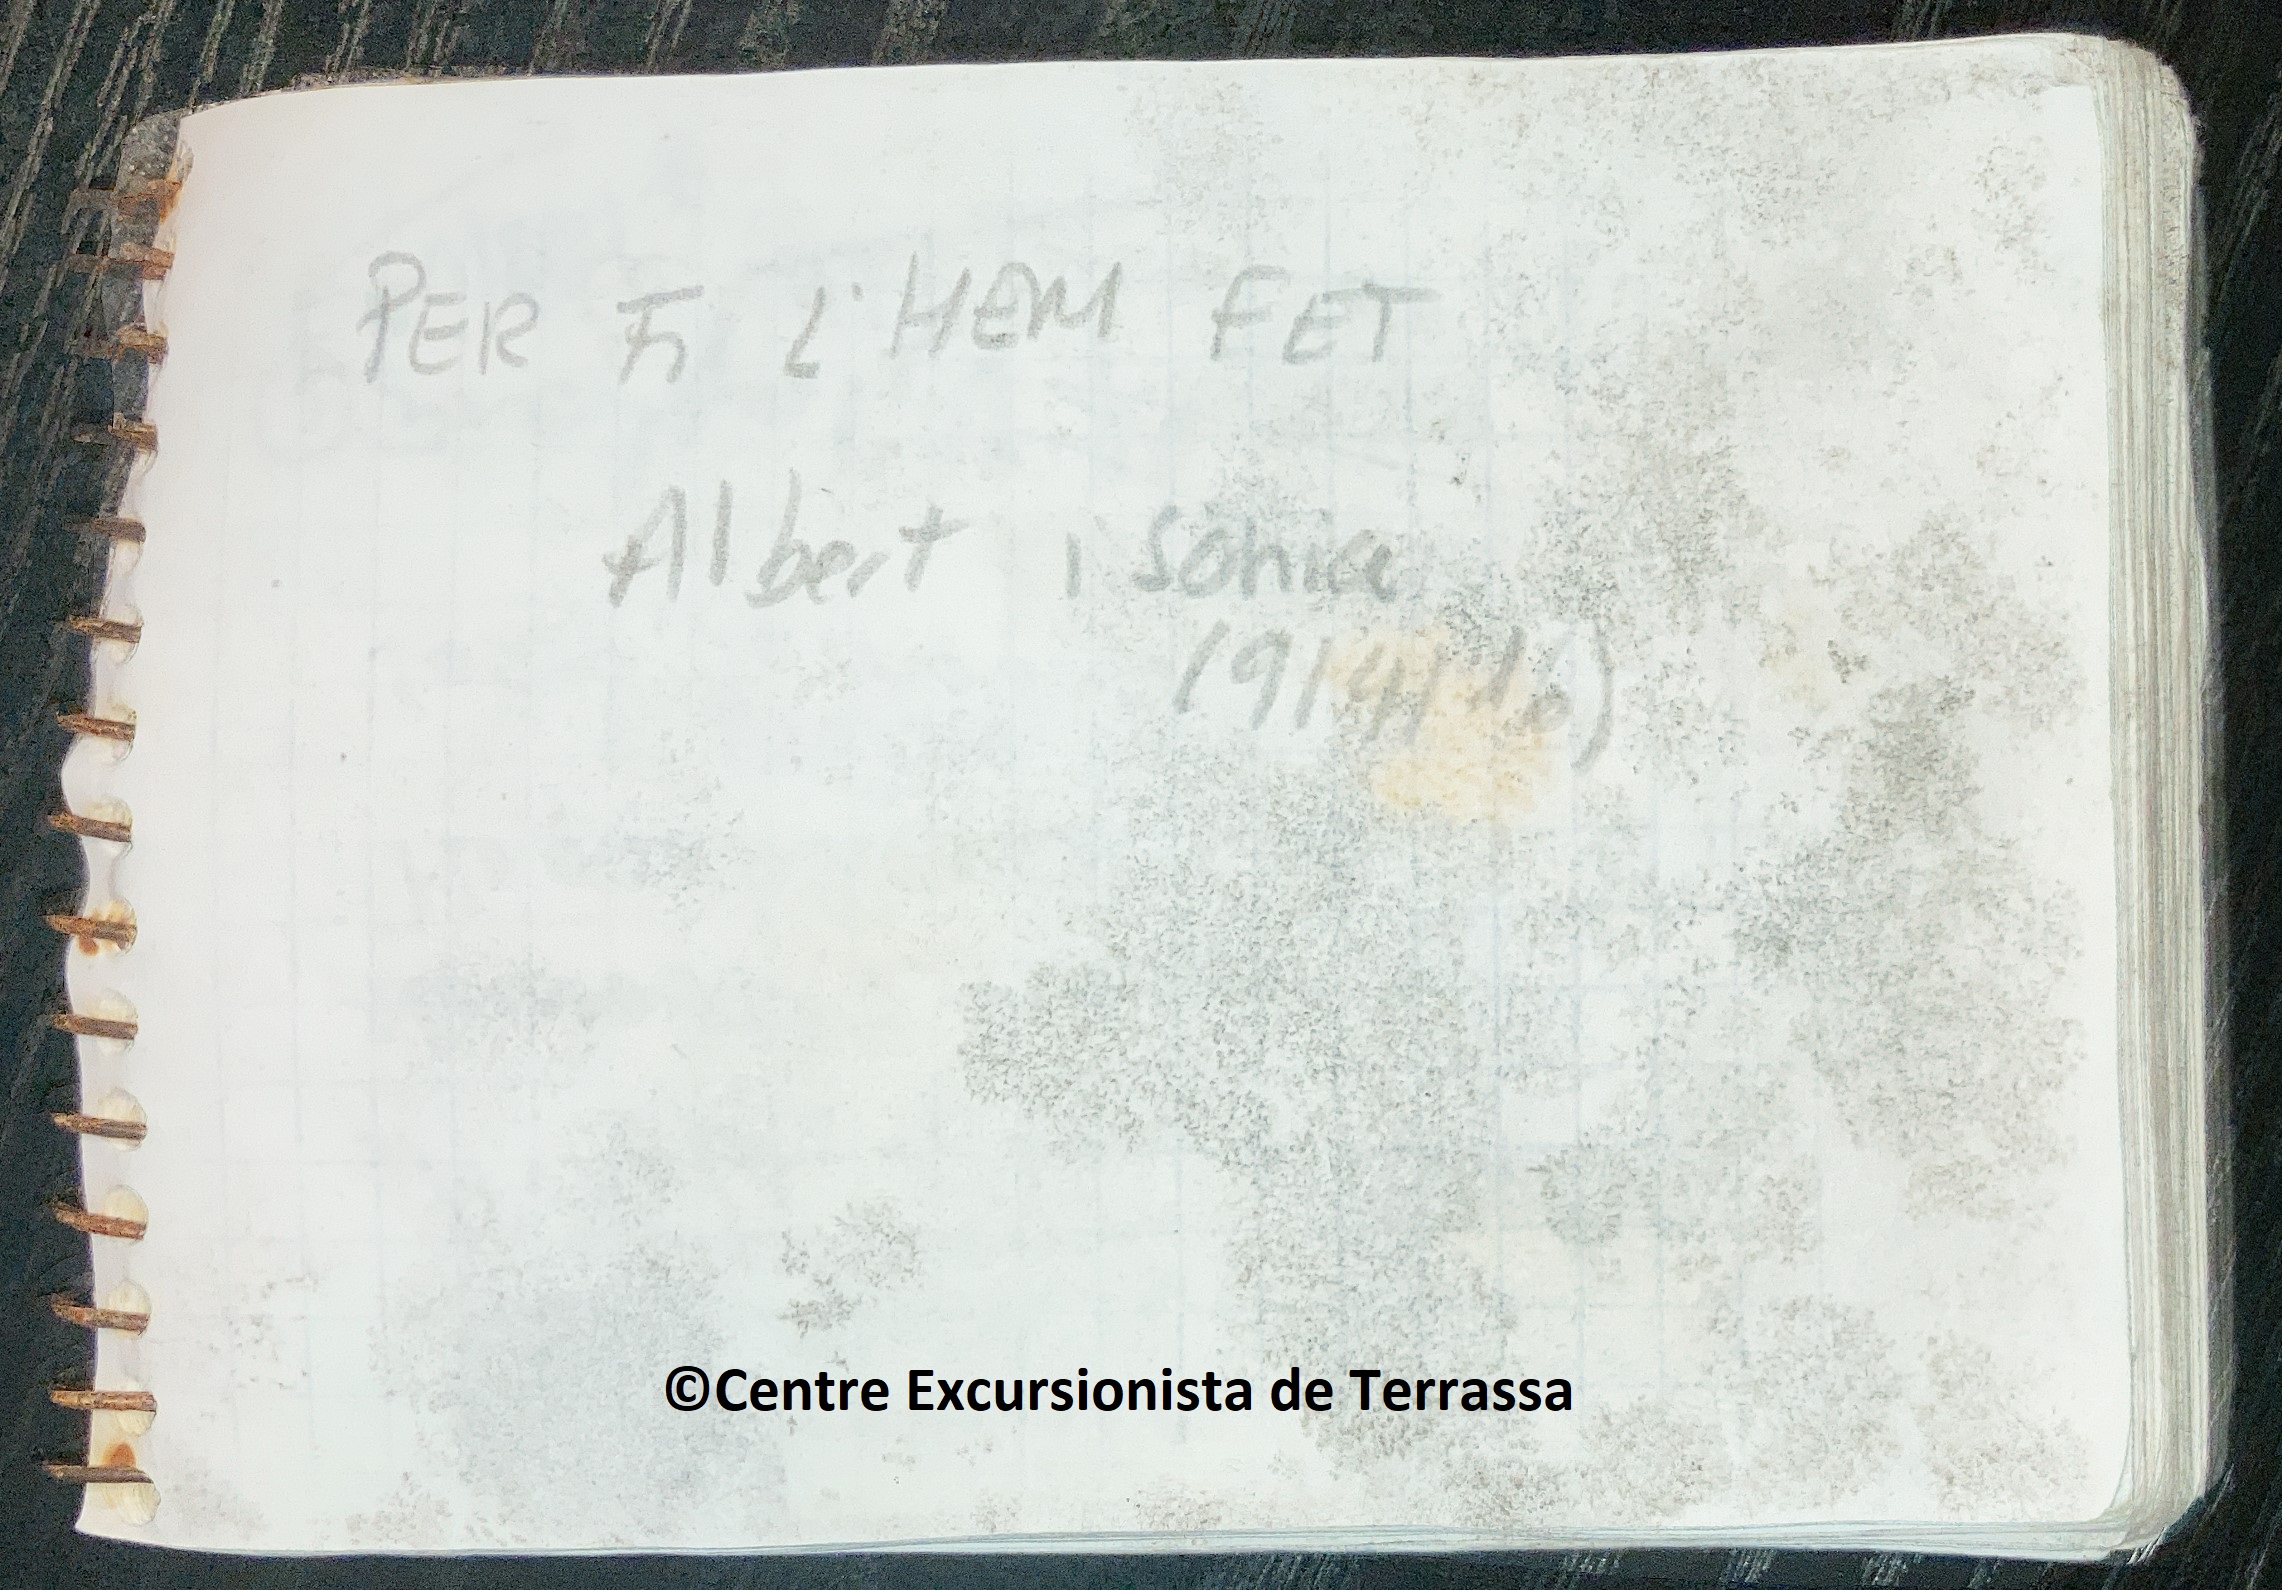 PER FI L'HEM FET
Albert i Sònia
(9/9/16)
©Centre Excursionista de Terrassa